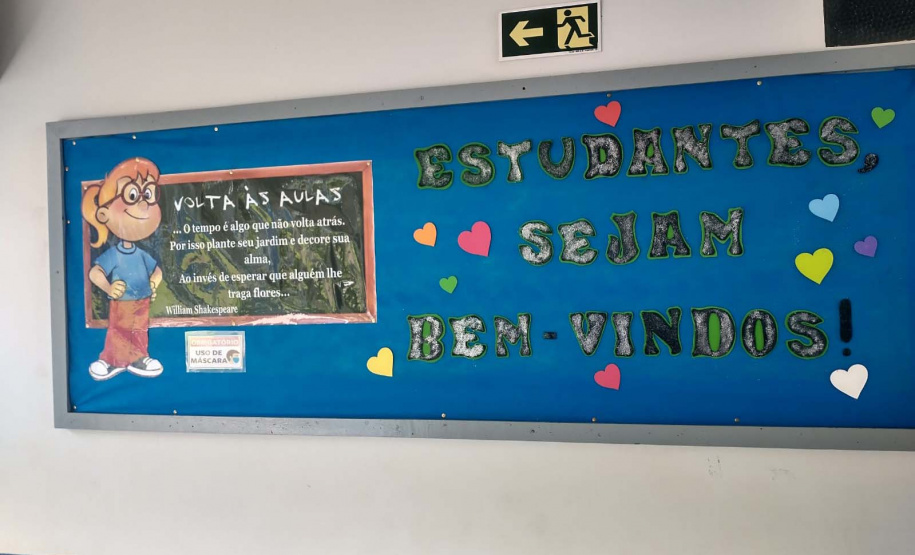 VOLTA ÀS AULAS
... O tempo é algo que não volta atrás.
Por isso plante seu jardim e decore sua
alma,
Ao invés de esperar que alguém lhe
traga flores...
William Shakespeare
OBRIGATÓRIO
USO DE
MÁSCARA
ESTUDANTES,
SEJAM
BEM-VINDOS!